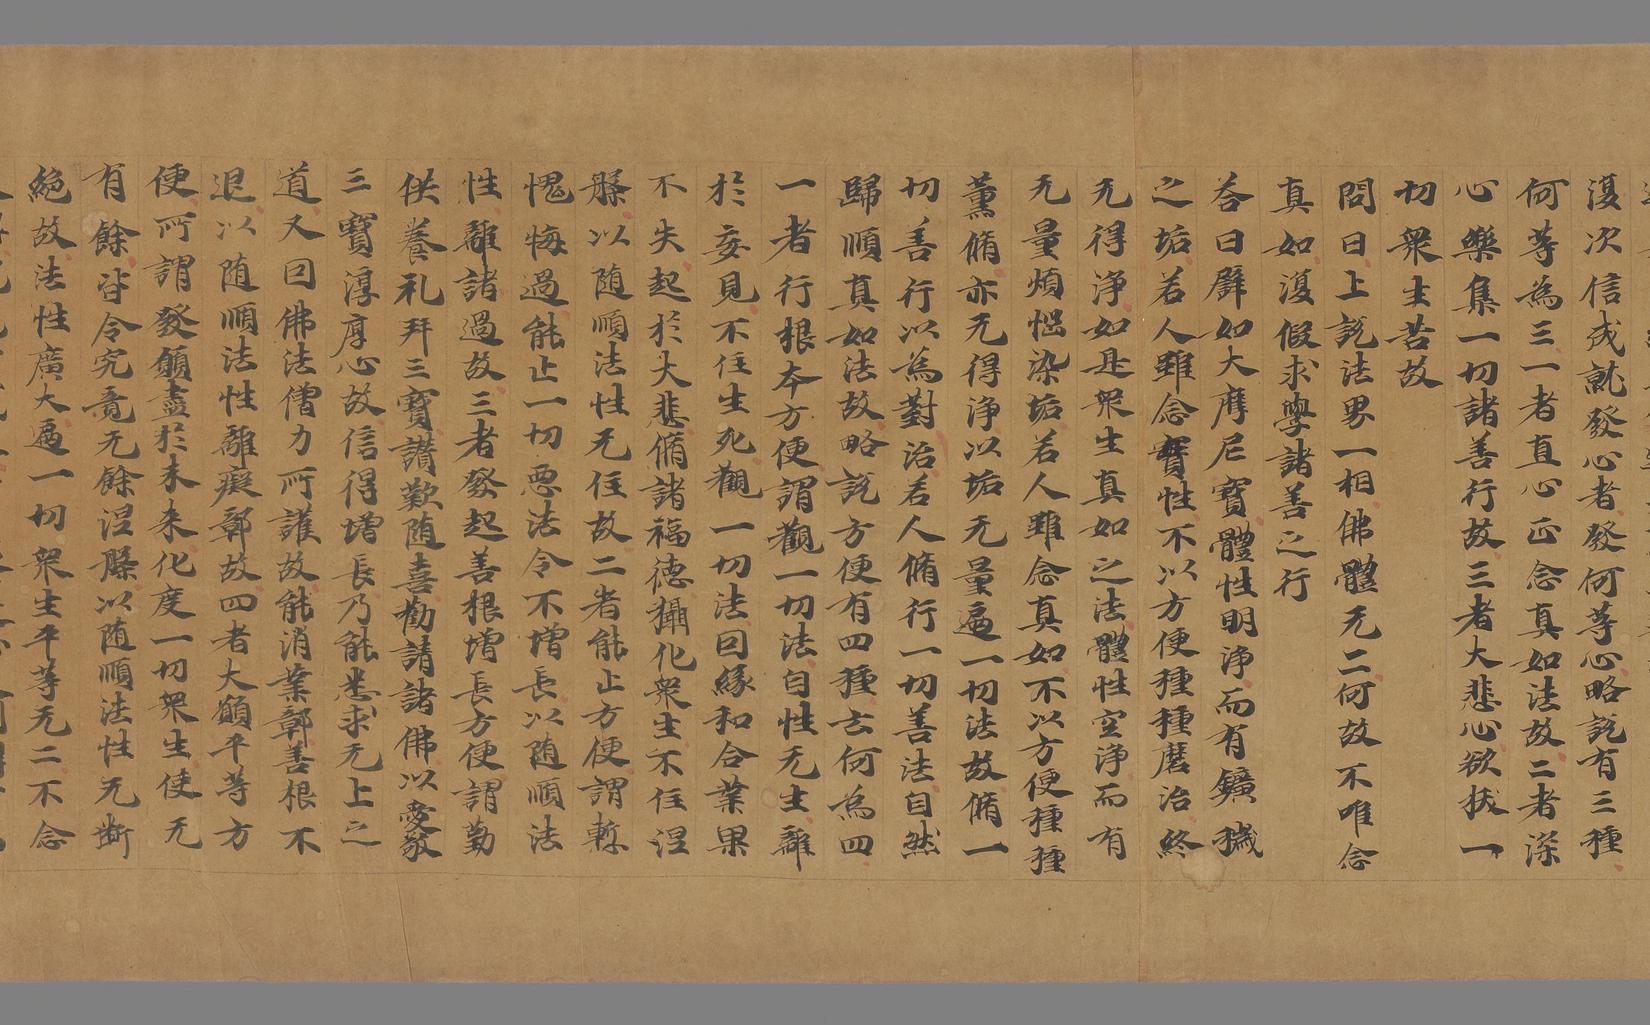 復次信成就發心者發何等心略説有三種
何等為三一者直心正念真如法故二者深
心樂集一切諸善行故三者大悲心欲拔一
切衆生苦故
問曰上説法界一相佛體无二何故不唯念
真如復假求學諸善之行
荅曰辟如大摩尼寶體性明淨而有鑛穢
之垢若人雖念寶性不以方便種種磨治終
无得淨如是衆生真如之法體性空淨而有
无量煩惱染垢若人雖念真如不以方便種種
薰脩亦无得淨以垢无量遍一切法故脩一
切善行以為對治若人脩行一切善法自然
歸順真如法故略説方便有四種云何為四
一者行根本方便謂觀一切法自性无生離
於妄見不住生死觀一切法因緣和合業果
不失起於大悲脩諸福德攝化衆生不住涅
槃以随順法性无住故二者能止方便謂慙
愧悔過能止一切惡法令不增長以随順法
性離諸過故三者發起善根增長方便謂勤
供養礼拜三寶讃歎随喜勸請諸佛以愛敬
三寶淳厚心故信得增長乃能志求无上之
道又因佛法僧力所護故能消業鄣善根不
退以随順法性離癡鄣故四者大願平等方
便所謂發願盡於未来化度一切衆生使无
有餘皆令究竟无餘涅槃以随順法性无斷
絶故法性廣大遍一切衆生平等无二不念